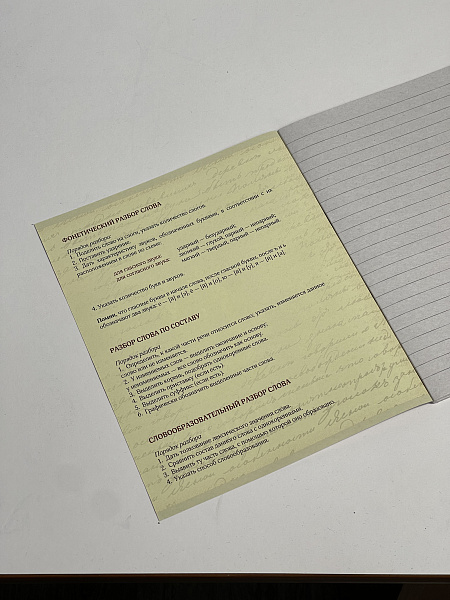 ФОНЕТИЧЕСКИЙ РАЗБОР СЛОВА
Порядок разбора
1. Поделить слово на слоги, указать количество слогов.
2. Поставить ударение.
3. Дать характеристику звуков, обозначенных буквами, в соответствии с их
расположением в слове по схеме:
для гласного звука: ударный — безударный;
для согласного звука: звонкий — глухой, парный — непарный;
мягкий — твердый, парный — непарный.
4. Указать количество букв и звуков.
Помни, что гласные буквы в начале слова, после гласной буквы, после ъ и ь
обозначают два звука: е — [й] и [э], ё — [й] и [о], ю — [й] и [у], я — [й] и [а].
РАЗБОР СЛОВА ПО СОСТАВУ
Порядок разбора
1. Определить, к какой части речи относится слово, указать, изменяется данное
слово или не изменяется.
2. У изменяемых слов — выделить окончание и основу,
у неизменяемых — все слово обозначить как основу.
3. Выделить корень, подобрать однокоренные слова.
4. Выделить приставку (если есть).
5. Выделить суффикс (если есть).
6. Графически обозначить выделенные части слова.
СЛОВООБРАЗОВАТЕЛЬНЫЙ РАЗБОР СЛОВА
Порядок разбора
1. Дать толкование лексического значения слова.
2. Сравнить состав данного слова с однокоренными.
3. Выявить ту часть слова, с помощью которой оно образовано.
4. Указать способ словообразования.